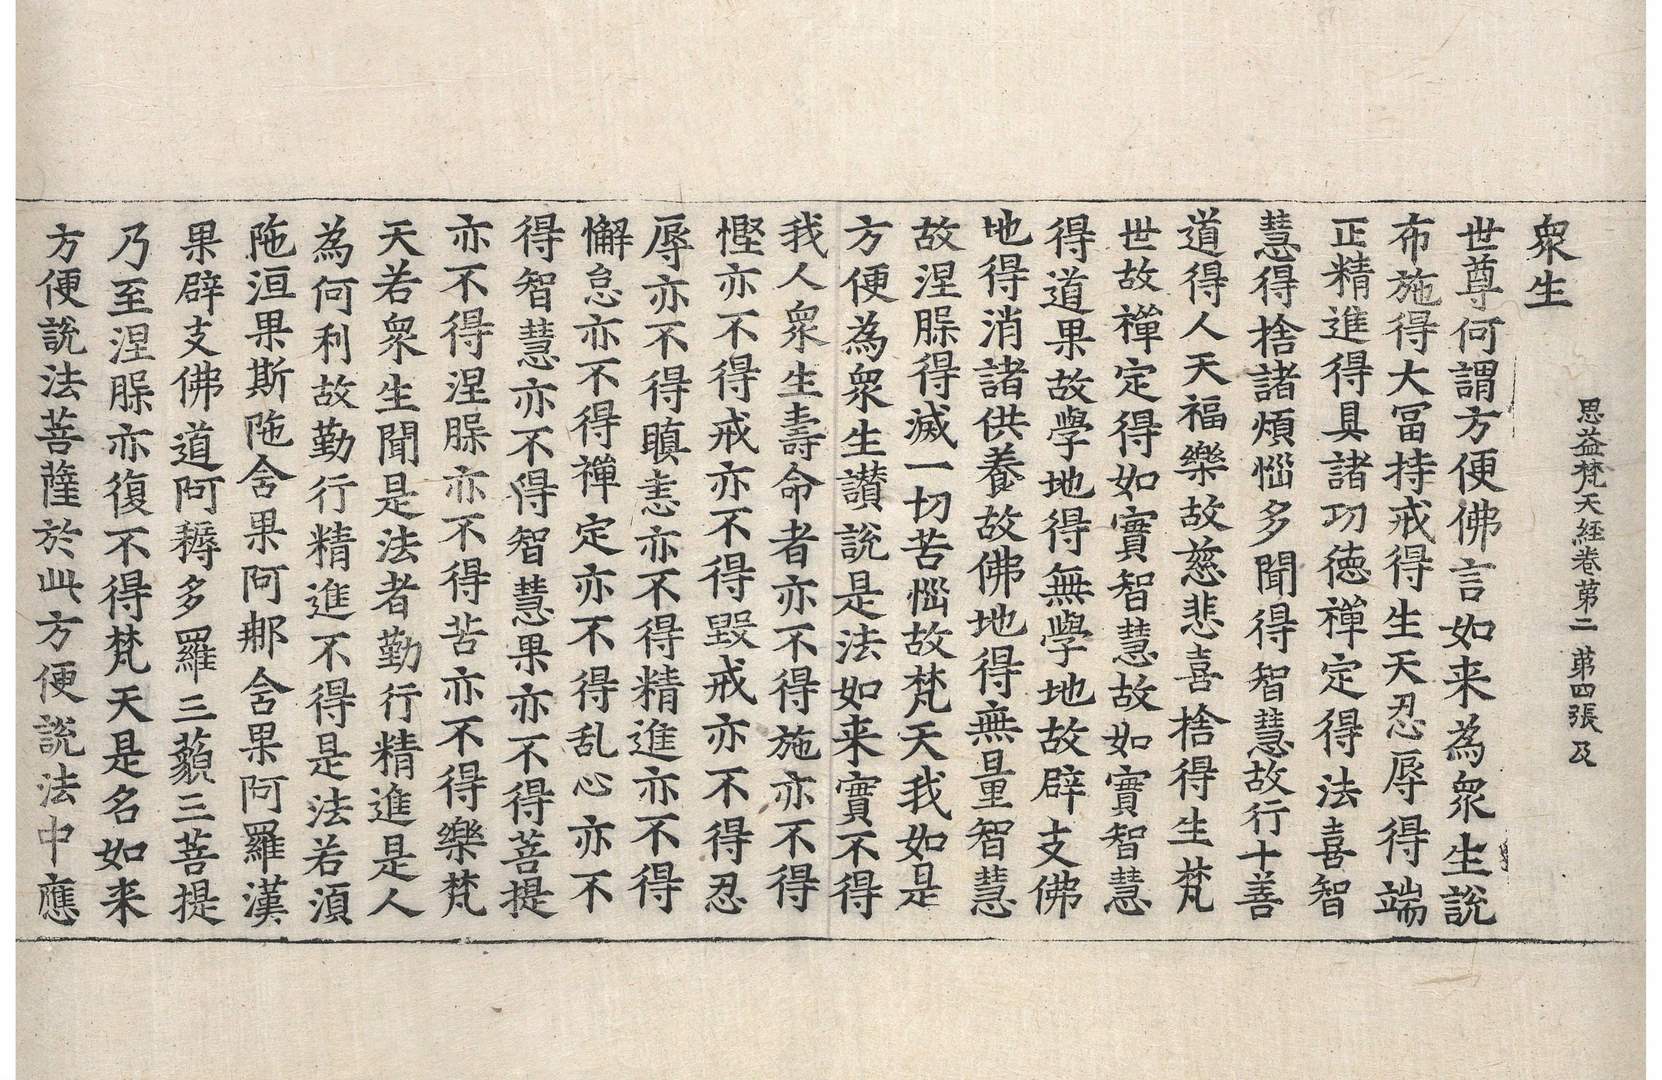 衆生
思益梵天経巻第二 第四張 及
世尊何謂方便佛言如来為衆生說
布施得大冨持戒得生天忍辱得端
正精進得具諸功徳禪定得法喜智
慧得捨諸煩惱多聞得智慧故行十善
道得人天福樂故慈悲喜捨得生梵
世故禪定得如實智慧故如實智慧
得道果故學地得無學地故辟支佛
地得消諸供養故佛地得無量智慧
故涅槃得滅一切苦惱故梵天我如是
方便為衆生讃說是法如来實不得
我人衆生壽命者亦不得施亦不得
慳亦不得戒亦不得毀戒亦不得忍
辱亦不得瞋恚亦不得精進亦不得
懈怠亦不得禪定亦不得乱心亦不
得智慧亦不得智慧果亦不得菩提
亦不得涅槃亦不得苦亦不得樂梵
天若衆生聞是法者勤行精進是人
為何利故勤行精進不得是法若湏
陁洹果斯陁含果阿那含果阿羅漢
果辟支佛道阿耨多羅三藐三菩提
乃至涅槃亦復不得梵天是名如来
方便說法菩薩於此方便說法中應